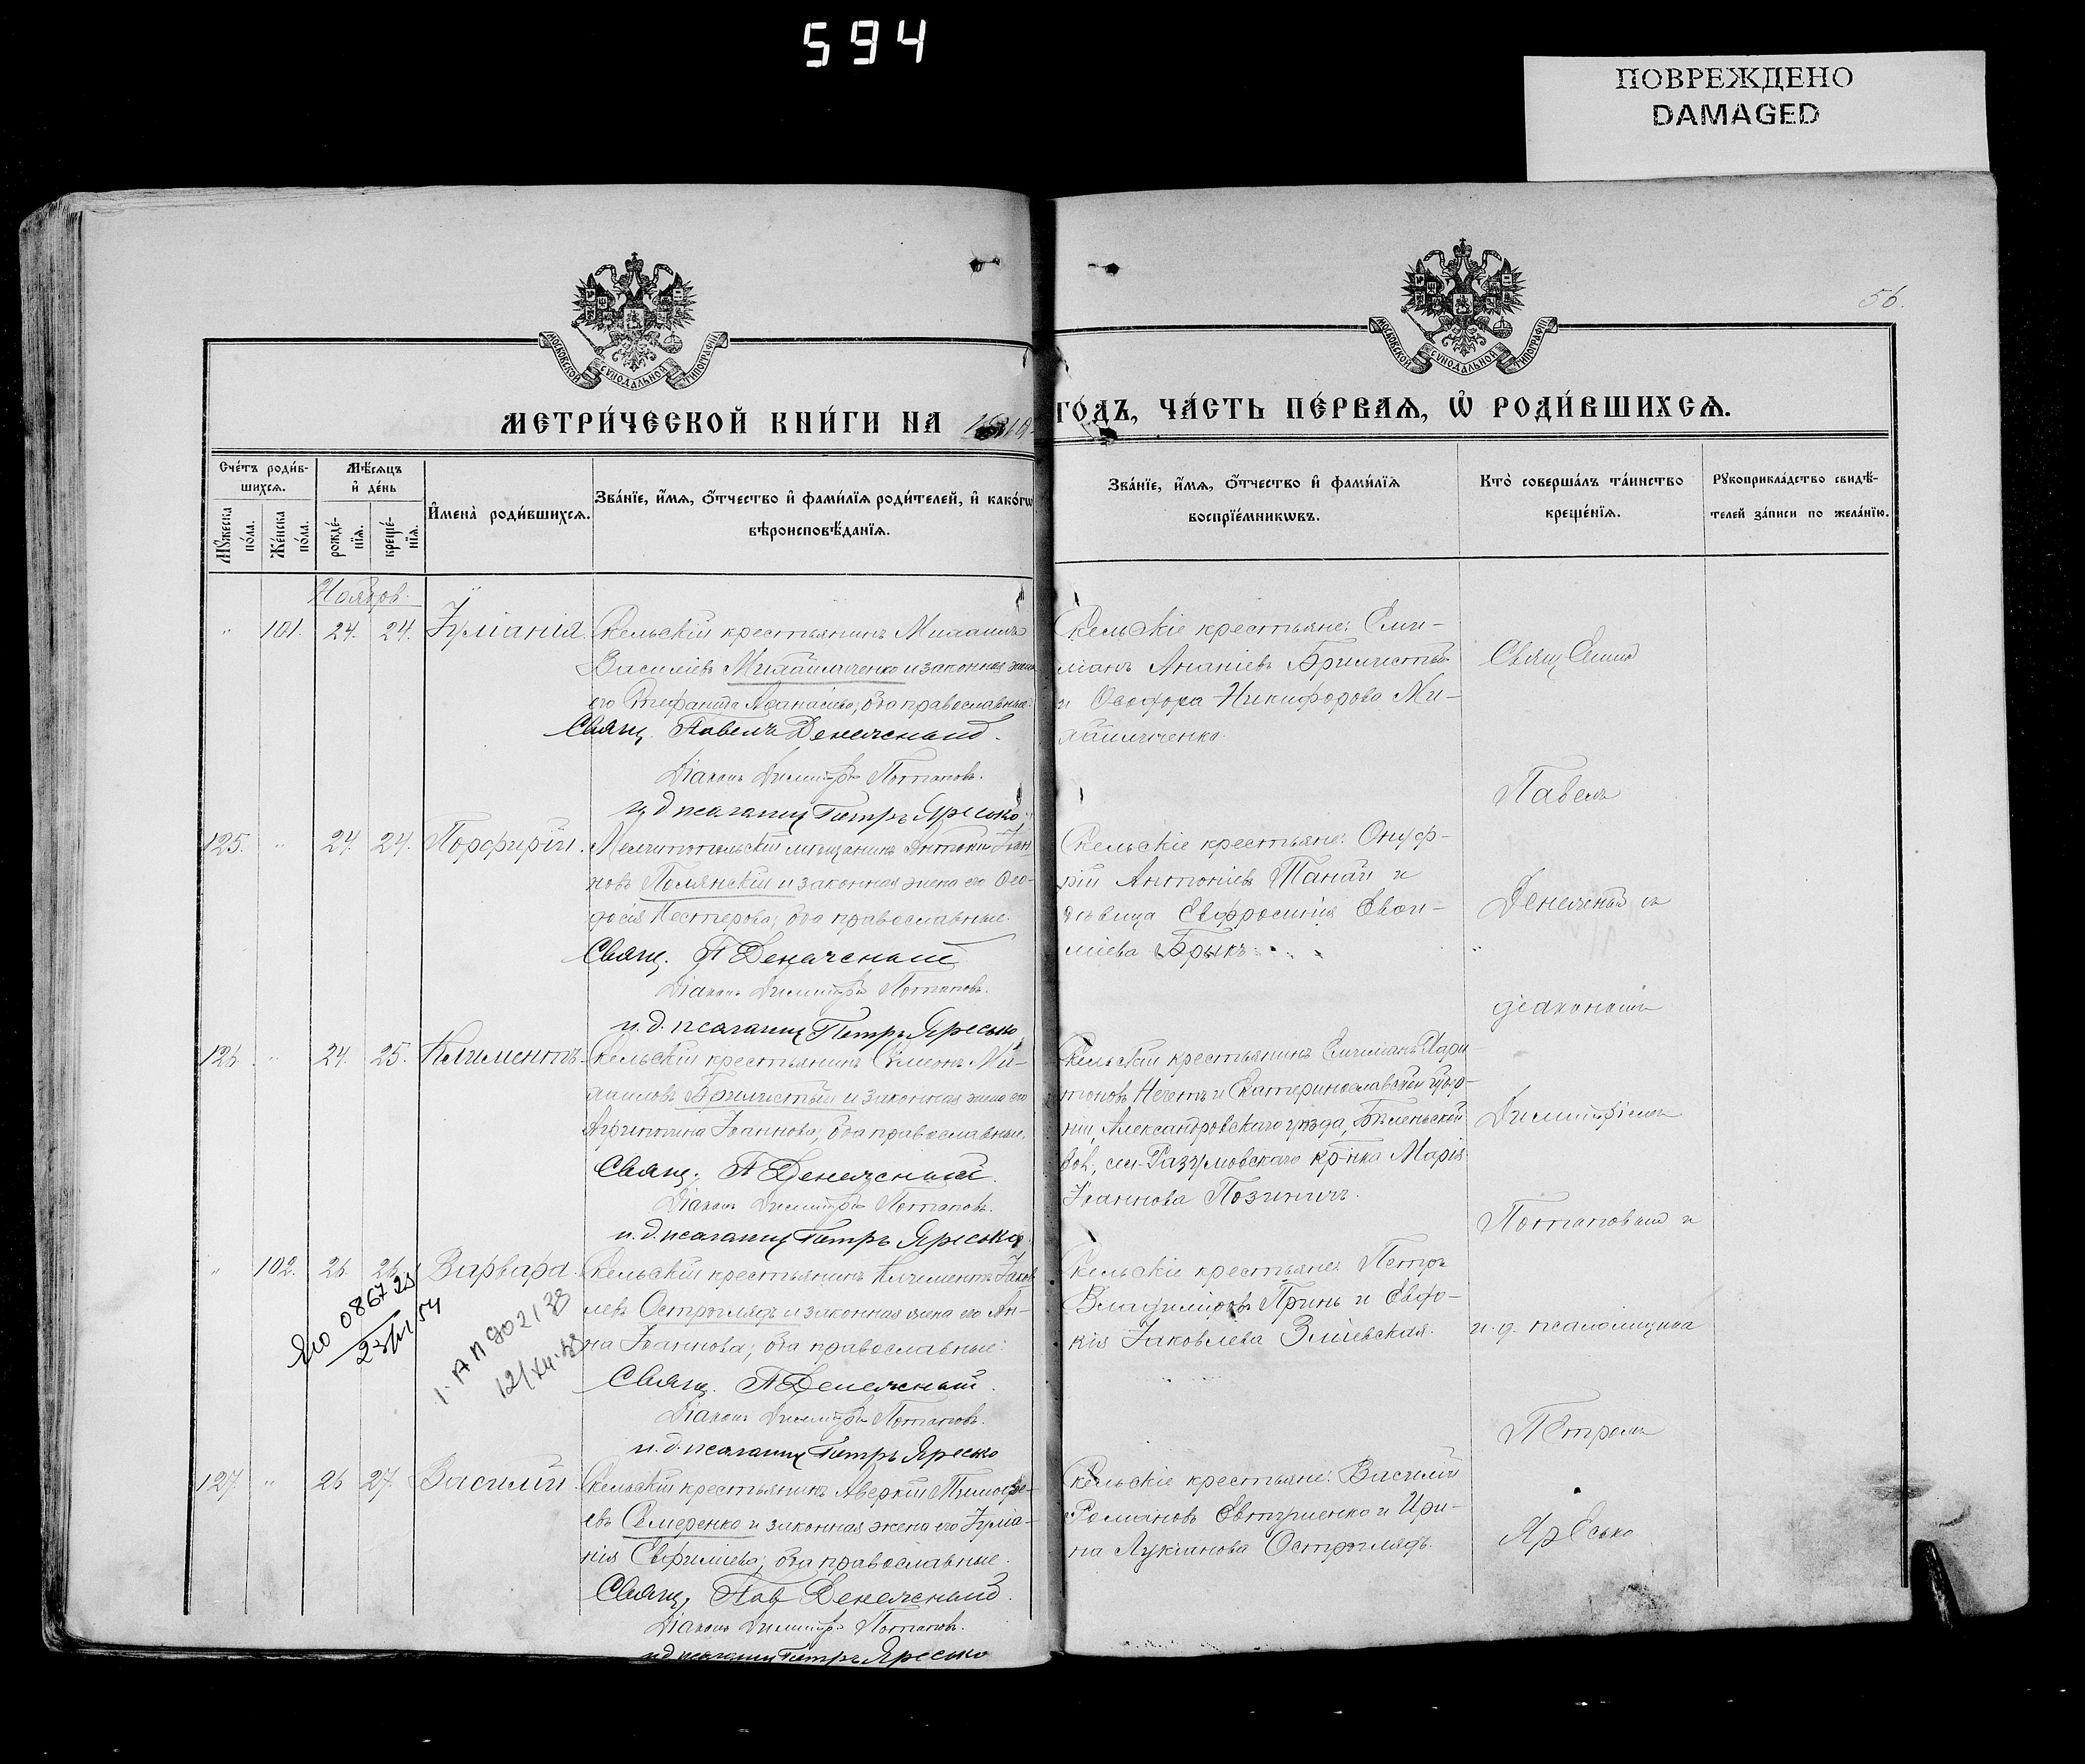 594
ПОВРЕЖДЕНО
DAMAGED
56.
МОСКОВСКОЙ СѴНОДАЛЬНОЙ ТИПОГРАФІИ
МОСКОВСКОЙ СѴНОДАЛЬНОЙ ТИПОГРАФІИ
МЕТРИ́ЧЕСКОЙ КНИ́ГИ НА 1910 ГО́ДЪ, ЧА́СТЬ ПЕ́РВАѦ, Ѡ҆ РОДИ́ВШИХСѦ.
Сче́тъ роди́в-
шихсѧ.
Мѣ́сѧцъ
и҆ де́нь
Мꙋ́жеска
по́ла.
Же́нска
по́ла.
рожде́-
нїѧ.
креще́-
нїѧ.
И҆мена̀ роди́вшихсѧ.
Зва́нїе, и҆́мѧ, ѻ҆́тчество и҆ фами́лїѧ роди́телей, и҆ како́гѡ
вѣроисповѣ́данїѧ.
Зва́нїе, и҆́мѧ, ѻ҆́тчество и҆ фами́лїѧ
воспрїе́мникѡвъ.
Кто̀ соверша́лъ та́инство
креще́нїѧ.
Рꙋкоприкла́дство свидѣ́-
телей за́писи по жела́нїю.
Ноябрь
" 101. 24. 24. Іуліанія.
Скельскій крестьянинъ Михаилъ
Василіевъ Михайличенко и законная жена
его Стефанида Аѳанасіева, оба православные.
Свящ. Павелъ Денежный.
Діаконъ Димитрій Потаповъ.
и д псаломщ Петръ Яресько
Скельскіе крестьяне: Еми-
ліанъ Ананіевъ Брилистый
и Ѳеодора Никифорова Ми-
хайличенко.
125. " 24. 24. Порфирій.
Мелитопольскій мещанинъ Антоній Іоан-
новъ Полянскій и законная жена его Ѳео-
досія Нестерова; оба православные.
Свящ. П Денежный
Діаконъ Димитрій Потаповъ.
и. д. псаломщ Петръ Яресько
Скельскіе крестьяне: Онуф-
рій Антоніевъ Танай и
дѣвица Евфросинія Евѳи-
міева Брыкъ.
126. " 24. 25. Климентъ.
Скельскій крестьянинъ Симеонъ Ми-
хаиловъ Брилистый и законная жена его
Агриппина Іоаннова; оба православные.
Свящ. П Денежный.
Діаконъ Димитрій Потаповъ.
и. д. псаломщ Петръ Яресько
Скельскій крестьянинъ Емиліанъ Хари-
тоновъ Нечетъ и Екатеринославской губер-
ніи, Александровскаго уѣзда, Бѣленьской
вол., сел. Разумовскаго кр-нка Марія
Іоаннова Позинич.
" 102. 26. 26. Варвара.
Скельскій крестьянинъ Климентъ Іаков-
левъ Остроглядъ и законная жена его Ан-
на Іоаннова; оба православные.
Свящ. П Денежный.
Діаконъ Димитрій Потаповъ.
и. д. псаломщ Петръ Яресько
Скельскіе крестьяне: Петръ
Владиміровъ Принь и Евдо-
кія Іаковлева Зміевская.
ЯЮ 086725
12/XII
127. " 26 27. Василій.
Скельскій крестьянинъ Аверкій Тимоѳе-
евъ Семеренко и законная жена его Іуліа-
нія Евфиміева, оба православные.
Свящ. Пав Денежный.
Діаконъ Димитрій Потаповъ.
и д псаломщ Петръ Яресько
Скельскіе крестьяне: Василій
Романовъ Евтушенко и Ири-
на Лукіанова Остроглядъ.
Павелъ
Денежный съ
діакономъ
Димитріемъ
Потаповымъ и
и. д. псаломщика
Петромъ
Яресько